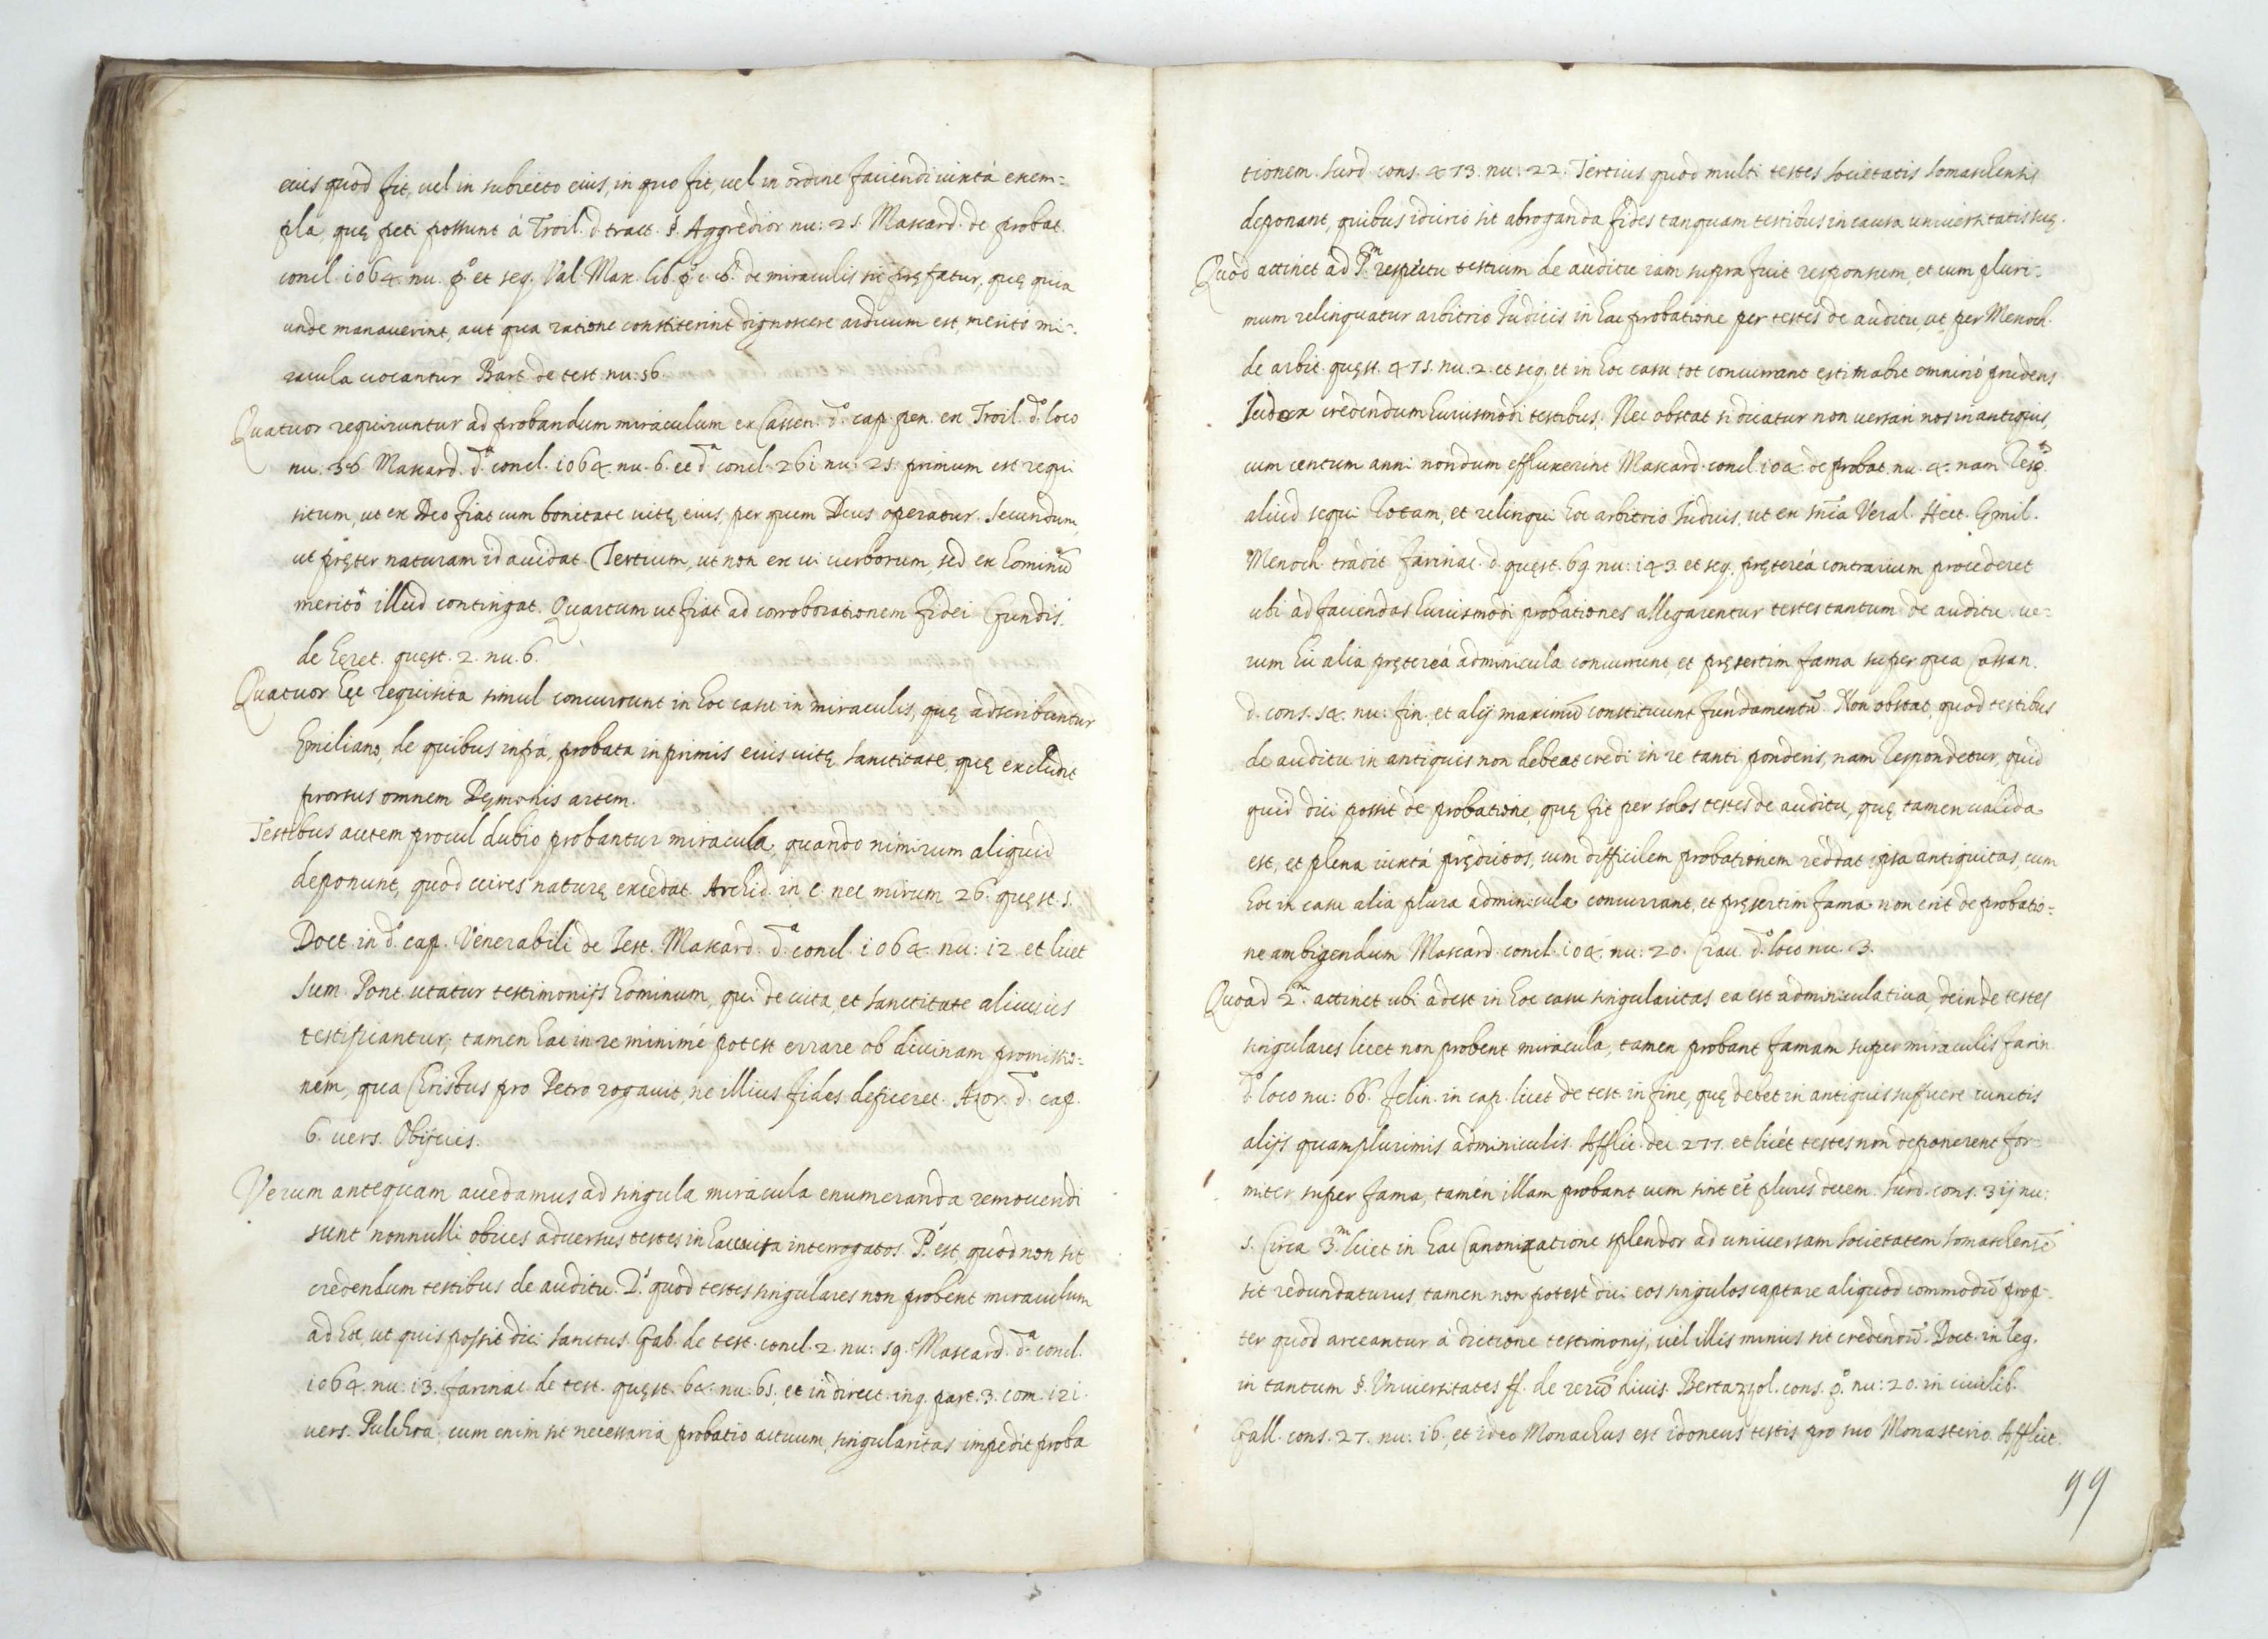 eius quod fit, uel in subiecto eius, in quo fit, uel in ordine faciendi iuxtà exem=
pla, quę peti possunt à Troil. d. tract. §. Aggredior nu: 25. Mascard. de probat.
concl. 1064. nu. p.º et seq. Val. Max. lib. p.º c. 8. de miraculis sic pręfatur, quę quia
unde manauerint, aut qua ratione constiterint dignoscere arduum est, meritò mi=
racula uocantur Bart. de test. nu: 56.
Quatuor requiruntur ad probandum miraculum ex Cassen. d.º cap. pen. ex Troil. d.º loco
nu. 36 Mascard. d.ª concl. 1064. nu. 6. et d.ª concl. 261 nu: 25. primum est requi
situm, ut ex Deo fiat cum bonitate uitę eius, per quem Deus operatur. Secundum,
ut pręter naturam id accidat. Tertium, ut non ex ui uerborum, sed ex hominũ
meritò illud contingat. Quartum ut fiat ad corroborationem fidei Gundis.
de hęret. quęst. 2. nu. 6.
Quatuor hęc requisita simul concurrunt in hoc casu in miraculis, quę adscribuntur
Emiliano, de quibus infrà, probata in primis eius uitę sanctitate, quę excludit
prorsus omnem Dęmonis artem.
Testibus autem procul dubio probantur miracula, quando nimirum aliquid
deponunt, quod uires naturę excedat Archid. in c. nec mirum 26. quęst. 5.
Doct. in d.º cap. Venerabili de Test. Mascard. d.ª concl. 1064. nu: 12. et licet
Sum. Pont. utatur testimonijs hominum, qui de uita, et sanctitate alicuius
testificantur, tamen hac in re minimè potest errare ob diuinam promissio=
nem, qua Christus pro Petro rogauit, ne illius fides deficeret. Azor. d.º cap.
6. uers. Obijcies.
Verum antequam accedamus ad singula miracula enumeranda remouendi
sunt nonnulli obices aduersus testes in hac causa interrogatos. P.º est, quod non sit
credendum testibus de auditu. 2.º quod testes singulares non probent miraculum
ad hoc, ut quis possit dici sanctus. Gab. de test. concl. 2. nu: 59. Mascard. d.ª concl.
1064. nu: 13. farinac. de test. quęst. 64. nu: 65, et in direct. inq. part. 3. com. 121.
uers. Pulchra, cum enim sit necessaria probatio actuum, singularitas impedit proba
tionem. Surd. cons. 473. nu: 22. Tertius quod multi testes Societatis Somaschensis
deponant, quibus idcircò sit abroganda fides tanquam testibus in causa uniuersitatis suę.
Quod attinet ad P.ᵐ respectu testium de auditu iam supra fuit responsum, et cum pluri=
mum relinquatur arbitrio Iudicis in hac probatione per testes de auditu, ut per Menoch.
de arbit. quęst. 475. nu. 2. et seq. et in hoc casu tot concurrant ęstimabit omninò prudens
Iudex credendum huiusmodi testibus. Nec obstat si dicatur non uersari nos in antiquis,
cum centum anni nondum effluxerint Mascard. concl. 104 de probat. nu. 4. nam Resp.
aliud sequi Rotam, et relinqui hoc arbitrio Iudicis, ut ex sñia Veral. Hect. Emil.
Menoch. tradit farinac. d. quęst. 69 nu: 143. et seq. prętereà contrarium procederet
ubi ad faciendas huiusmodi probationes allegarentur testes tantum de auditu. ue=
rum hic alia prętereà adminicula concurrunt, et pręsertim fama super qua Cassan.
d. cons. 54. nu: fin, et alij maximũ constituunt fundamentũ. Non obstat, quod testibus
de auditu in antiquis non debeat credi in re tanti ponderis, nam Respondetur, quid
quid dici possit de probatione, quę fit per solos testes de auditu, quę tamen ualida
est, et plena iuxtà prędictos, cum difficilem probationem reddat ipsa antiquitas, cum
hoc in casu alia plura adminicula concurrant, et pręsertim fama non erit de probatio=
ne ambigendum Mascard. concl. 104. nu: 20. Crau. d.º loco nu. 3.
Quoad 2.ᵐ attinet ubi adest in hoc casu singularitas ea est adminiculatiua, deinde testes
singulares licet non probent miracula, tamen probant famam super miraculis farin.
d.º loco nu: 66. Felin. in cap. licet de test. in fine, quę debet in antiquis sufficere iunctis
alijs quamplurimis adminiculis. Afflic. dec. 277. et licèt testes non deponerent for=
miter super fama, tamèn illam probant cum sint et plures decem. Surd. cons. 311 nu:
5. Circa 3.ᵐ licet in hac Canonizatione splendor ad uniuersam societatem somaschensẽ
sit redundaturus, tamen non potest dici eos singulos captare aliquod commodũ prop=
ter quod arceantur à dictione testimonij, uel illis minus sit credendũ. Doct. in leg.
in tantum §. Uniuersitates ff. de rerũ diuis. Bertazzol. cons. p.º nu: 20. in ciuilib.
Gall. cons. 27. nu: 16, et ideo Monachus est idoneus testis pro suo Monasterio. Afflict.
99